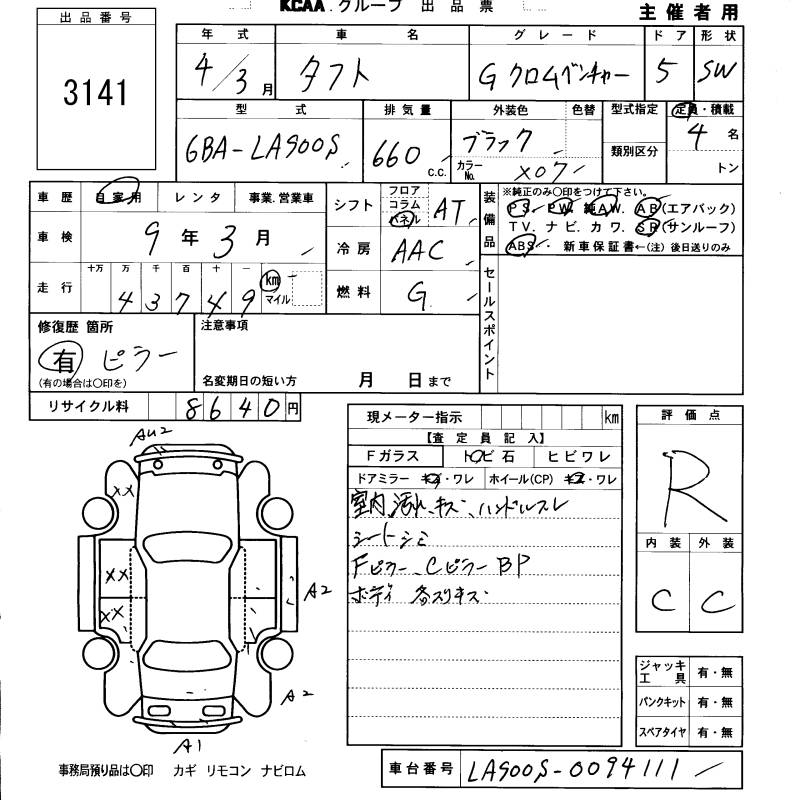 出品番号
3141
KCAA.グループ 出品票
主催者用
年式 車名 グレード ドア 形状
4/3月 タフト Gクロムベンチャー 5 SW
型式 排気量 外装色 色替 型式指定 定員・積載
6BA-LA900S 660 C.C. ブラック カラーNo. X07 類別区分 4名 トン
車歴 自家用 レンタ 事業.営業車
車検 9年3月
走行 十万 万 千 百 十 一 km マイル
4 3 7 4 9
シフト フロア コラム パネル AT
冷房 AAC
燃料 G
装備品
※純正のみ○印をつけて下さい。
PS. PW. 純AW. AB(エアバック)
TV. ナビ. カワ. SR(サンルーフ)
ABS. 新車保証書←(注)後日送りのみ
セールスポイント
修復歴 箇所
有 ピラー
(有の場合は○印を)
注意事項
名変期日の短い方 月 日まで
リサイクル料 8640円
現メーター指示 km
【査定員記入】
Fガラス トビ石 ヒビワレ
ドアミラー キズ・ワレ ホイール(CP) キズ・ワレ
室内汚れ、キズ、ハンドルスレ
シートシミ
Fピラー、Cピラー BP
ボディ 各スリキズ
評価点
R
内装 外装
C C
ジャッキ工具 有・無
パンクキット 有・無
スペアタイヤ 有・無
AU2
XX
XX
XX
A2
A2
A1
事務局預り品は○印 カギ リモコン ナビロム
車台番号 LA900S-0094111